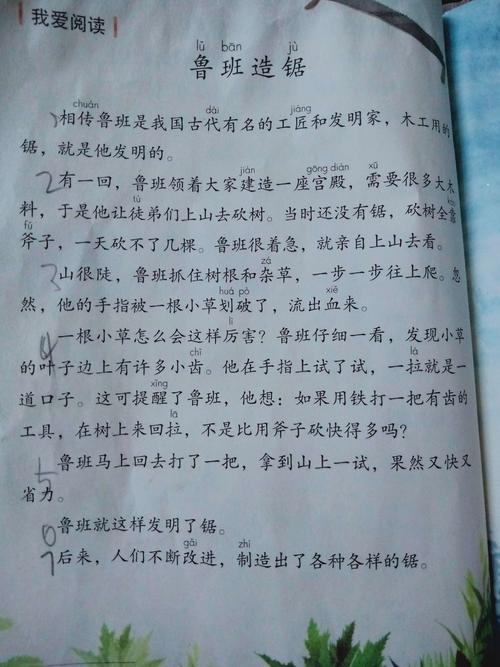 我爱阅读
lǔ bān jù
鲁班造锯
chuán dài jiàng
1 相传鲁班是我国古代有名的工匠和发明家，木工用的
锯，就是他发明的。
jiàn gōng diàn xū
2 有一回，鲁班领着大家建造一座宫殿，需要很多大木
tú kào
料，于是他让徒弟们上山去砍树。当时还没有锯，砍树全靠
fǔ
斧子，一天砍不了几棵。鲁班很着急，就亲自上山去看。
zá
3 山很陡，鲁班抓住树根和杂草，一步一步往上爬。忽
huá pò xiě
然，他的手指被一根小草划破了，流出血来。
lì
4 一根小草怎么会这样厉害？鲁班仔细一看，发现小草
chǐ lá
的叶子边上有许多小齿。他在手指上试了试，一拉就是一
xǐng
道口子。这可提醒了鲁班，他想：如果用铁打一把有齿的
lā
工具，在树上来回拉，不是比用斧子砍快得多吗？
5 鲁班马上回去打了一把，拿到山上一试，果然又快又
省力。
6 鲁班就这样发明了锯。
gǎi zhì
7 后来，人们不断改进，制造出了各种各样的锯。